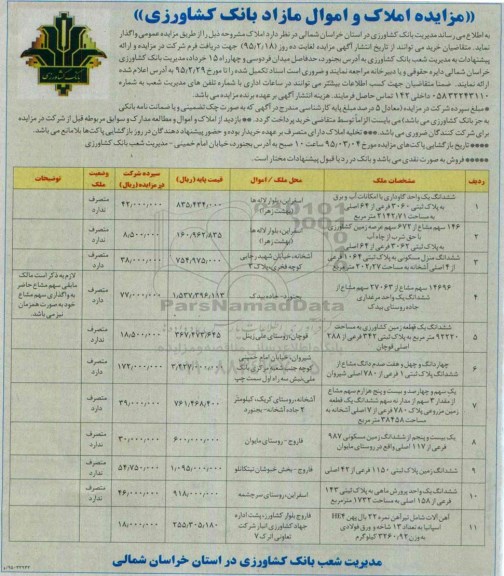 «مزایده املاک و اموال مازاد بانک کشاورزی»
به اطلاع می رساند مدیریت بانک کشاورزی در استان خراسان شمالی در نظر دارد املاک مشروحه ذیل را از طریق مزایده عمومی واگذار
نماید. متقاضیان خرید می توانند از تاریخ انتشار آگهی مزایده لغایت ده روز (۹۵/۲/۱۸) جهت دریافت فرم شرکت در مزایده و ارائه
پیشنهادات به مدیریت شعب بانک کشاورزی به آدرس بجنورد، حدفاصل میدان فردوسی و چهارراه ۱۵ خرداد، مدیریت بانک کشاورزی
خراسان شمالی دایره حقوقی و یا دبیرخانه مراجعه نمایند و ضروری است اسناد تکمیل شده را تا مورخ ۹۵/۲/۲۹ به آدرس اعلام شده
ارائه نمایند. ضمنا متقاضیان جهت کسب اطلاعات بیشتر می توانند در ساعات اداری با شماره تلفن های مدیریت شعب به شماره
۰۵۸۳۲۲۴۳۱۱۰ - ۱۴۲ تماس حاصل فرمایند. هزینه انتشار آگهی بر عهده برنده مزایده می باشد.
*مبلغ سپرده شرکت در مزایده (معادل ۵ درصد مبلغ پایه کارشناسی مندرج در آگهی که به صورت چک تضمینی و یا ضمانت نامه بانکی
به جز بانک کشاورزی می باشد) می بایست الزاماً توسط متقاضی خرید پرداخت گردد. **بازدید از املاک و اموال و مطالعه مدارک و سوابق مربوطه قبل از شرکت در مزایده
برای شرکت کنندگان ضروری می باشد. ***تخلیه املاک دارای متصرف بر عهده خریدار بوده و حضور پیشنهاد دهندگان در روز بازگشایی پاکت ها بلامانع می باشد.
****تاریخ بازگشایی پاکت های مزایده مورخ ۹۵/۰۳/۰۴ ساعت ۱۰ صبح به آدرس بجنورد، خیابان امام خمینی - مدیریت شعب بانک کشاورزی
*****فروش به صورت نقدی می باشد و بانک در رد یا قبول پیشنهادات مختار است.
ردیف مشخصات ملک محل ملک / اموال قیمت پایه (ریال) سپرده شرکت در مزایده (ریال) وضعیت ملک توضیحات
۱ ششدانگ یک واحد گاوداری با امکانات آب و برق به پلاک ثبتی ۳۰۶۰ فرعی از ۶۴ اصلی به مساحت ۲۱۴۲/۷۱ متر مربع اسفراین، بلوار لاله ها (بهشت زهرا) ۸۳۵,۴۳۴,۰۰۰ ۴۲,۰۰۰,۰۰۰ متصرف ندارد
۲ ۱۴۶ سهم مشاع از ۶۷۲ سهم عرصه زمین کشاورزی با حق شرب از چاه آب به پلاک ثبتی ۳۰۶۲ فرعی از ۶۴ اصلی اسفراین، بلوار لاله ها (بهشت زهرا) ۱۶۰,۹۶۲,۸۳۵ ۸,۵۰۰,۰۰۰ متصرف ندارد
۳ ششدانگ منزل مسکونی به پلاک ثبتی ۱۰۶۴ فرعی از ۴ اصلی آشخانه به مساحت ۲۰۲/۲۷ متر مربع آشخانه، خیابان شهید رجایی کوچه فخری، پلاک ۲ ۷۵۴,۹۷۵,۰۰۰ ۳۸,۰۰۰,۰۰۰ متصرف دارد
۴ ۱۴۶۹۶ سهم مشاع از ۲۷۰۶۳ سهم مشاع از ششدانگ یک واحد مرغداری جاده روستای بیدک بجنورد - جاده بیدک ۱,۵۳۷,۳۹۶,۱۱۳ ۷۷,۰۰۰,۰۰۰ متصرف دارد لازم به ذکر است مالک مابقی سهم مشاع حاضر به واگذاری سهم مشاع خود به صورت همزمان نیز می باشد.
۵ ششدانگ یک قطعه زمین کشاورزی به مساحت ۹۲۲۲۰ متر مربع به پلاک ثبتی ۳۴۲ فرعی از ۲۸۸ اصلی قوچان قوچان، روستای علی زینل ۳۶۷,۴۷۳,۶۴۵ ۱۸,۵۰۰,۰۰۰ متصرف ندارد
۶ چهار دانگ و چهل و هفت صدم دانگ مشاع از ششدانگ پلاک ثبتی ۱ فرعی از ۷۸۰ اصلی شیروان شیروان، خیابان امام خمینی کوچه جنب شعبه مرکزی بانک ملی، نبش سه راه اول سمت چپ ۳,۴۲۷,۰۰۰,۰۰۰ ۱۷۲,۰۰۰,۰۰۰ متصرف دارد
۷ یک سهم و چهارصد و بیست و پنج هزارم سهم مشاع از مقدار ۳ سهم از مدار نه سهم ششدانگ یک قطعه زمین مزروعی پلاک ۷۸۰ فرعی از ۷ اصلی آشخانه به مساحت ۳۸۴۵۸ متر مربع آشخانه، روستای کریک، کیلومتر ۲ جاده آشخانه - بجنورد ۷۶۱,۴۶۸,۴۰۰ ۳۹,۰۰۰,۰۰۰ متصرف دارد
۸ یک بیست و پنجم از ششدانگ زمین مسکونی ۹۸۷ فرعی از ۱۱۷ اصلی واقع در روستای مایوان فاروج - روستای مایوان ۶۰۰,۰۰۰,۰۰۰ ۳۰,۰۰۰,۰۰۰ متصرف ندارد
۹ ششدانگ زمین پلاک ثبتی ۱۱۵۰ فرعی از ۴۲ اصلی فاروج - بخش خبوشان تیتکانلو ۱,۰۹۵,۰۰۰,۰۰۰ ۵۴,۷۵۰,۰۰۰ متصرف ندارد
۱۰ ششدانگ یک واحد پرورش ماهی به پلاک ثبتی ۱۴۳ فرعی از ۱۵۸ اصلی به مساحت ۱۷۳۲ متر مربع اسفراین، روستای سرچشمه ۹۱۸,۰۰۰,۰۰۰ ۴۶,۰۰۰,۰۰۰ متصرف ندارد
۱۱ آهن آلات شامل تیر آهن نمره ۲۲ بال پهن HE4 اسپانیا به تعداد ۱۳ شاخه و ورق فولادی به وزن ۳۲۶۰/۹۲ کیلوگرم فاروج بلوار کشاورز، پشت اداره جهاد کشاورزی انبار شرکت تعاونی اترک ۷ ۲۵۵,۳۰۵,۱۸۰ ۱۸,۰۰۰,۰۰۰
ParsNamadData
مدیریت شعب بانک کشاورزی در استان خراسان شمالی